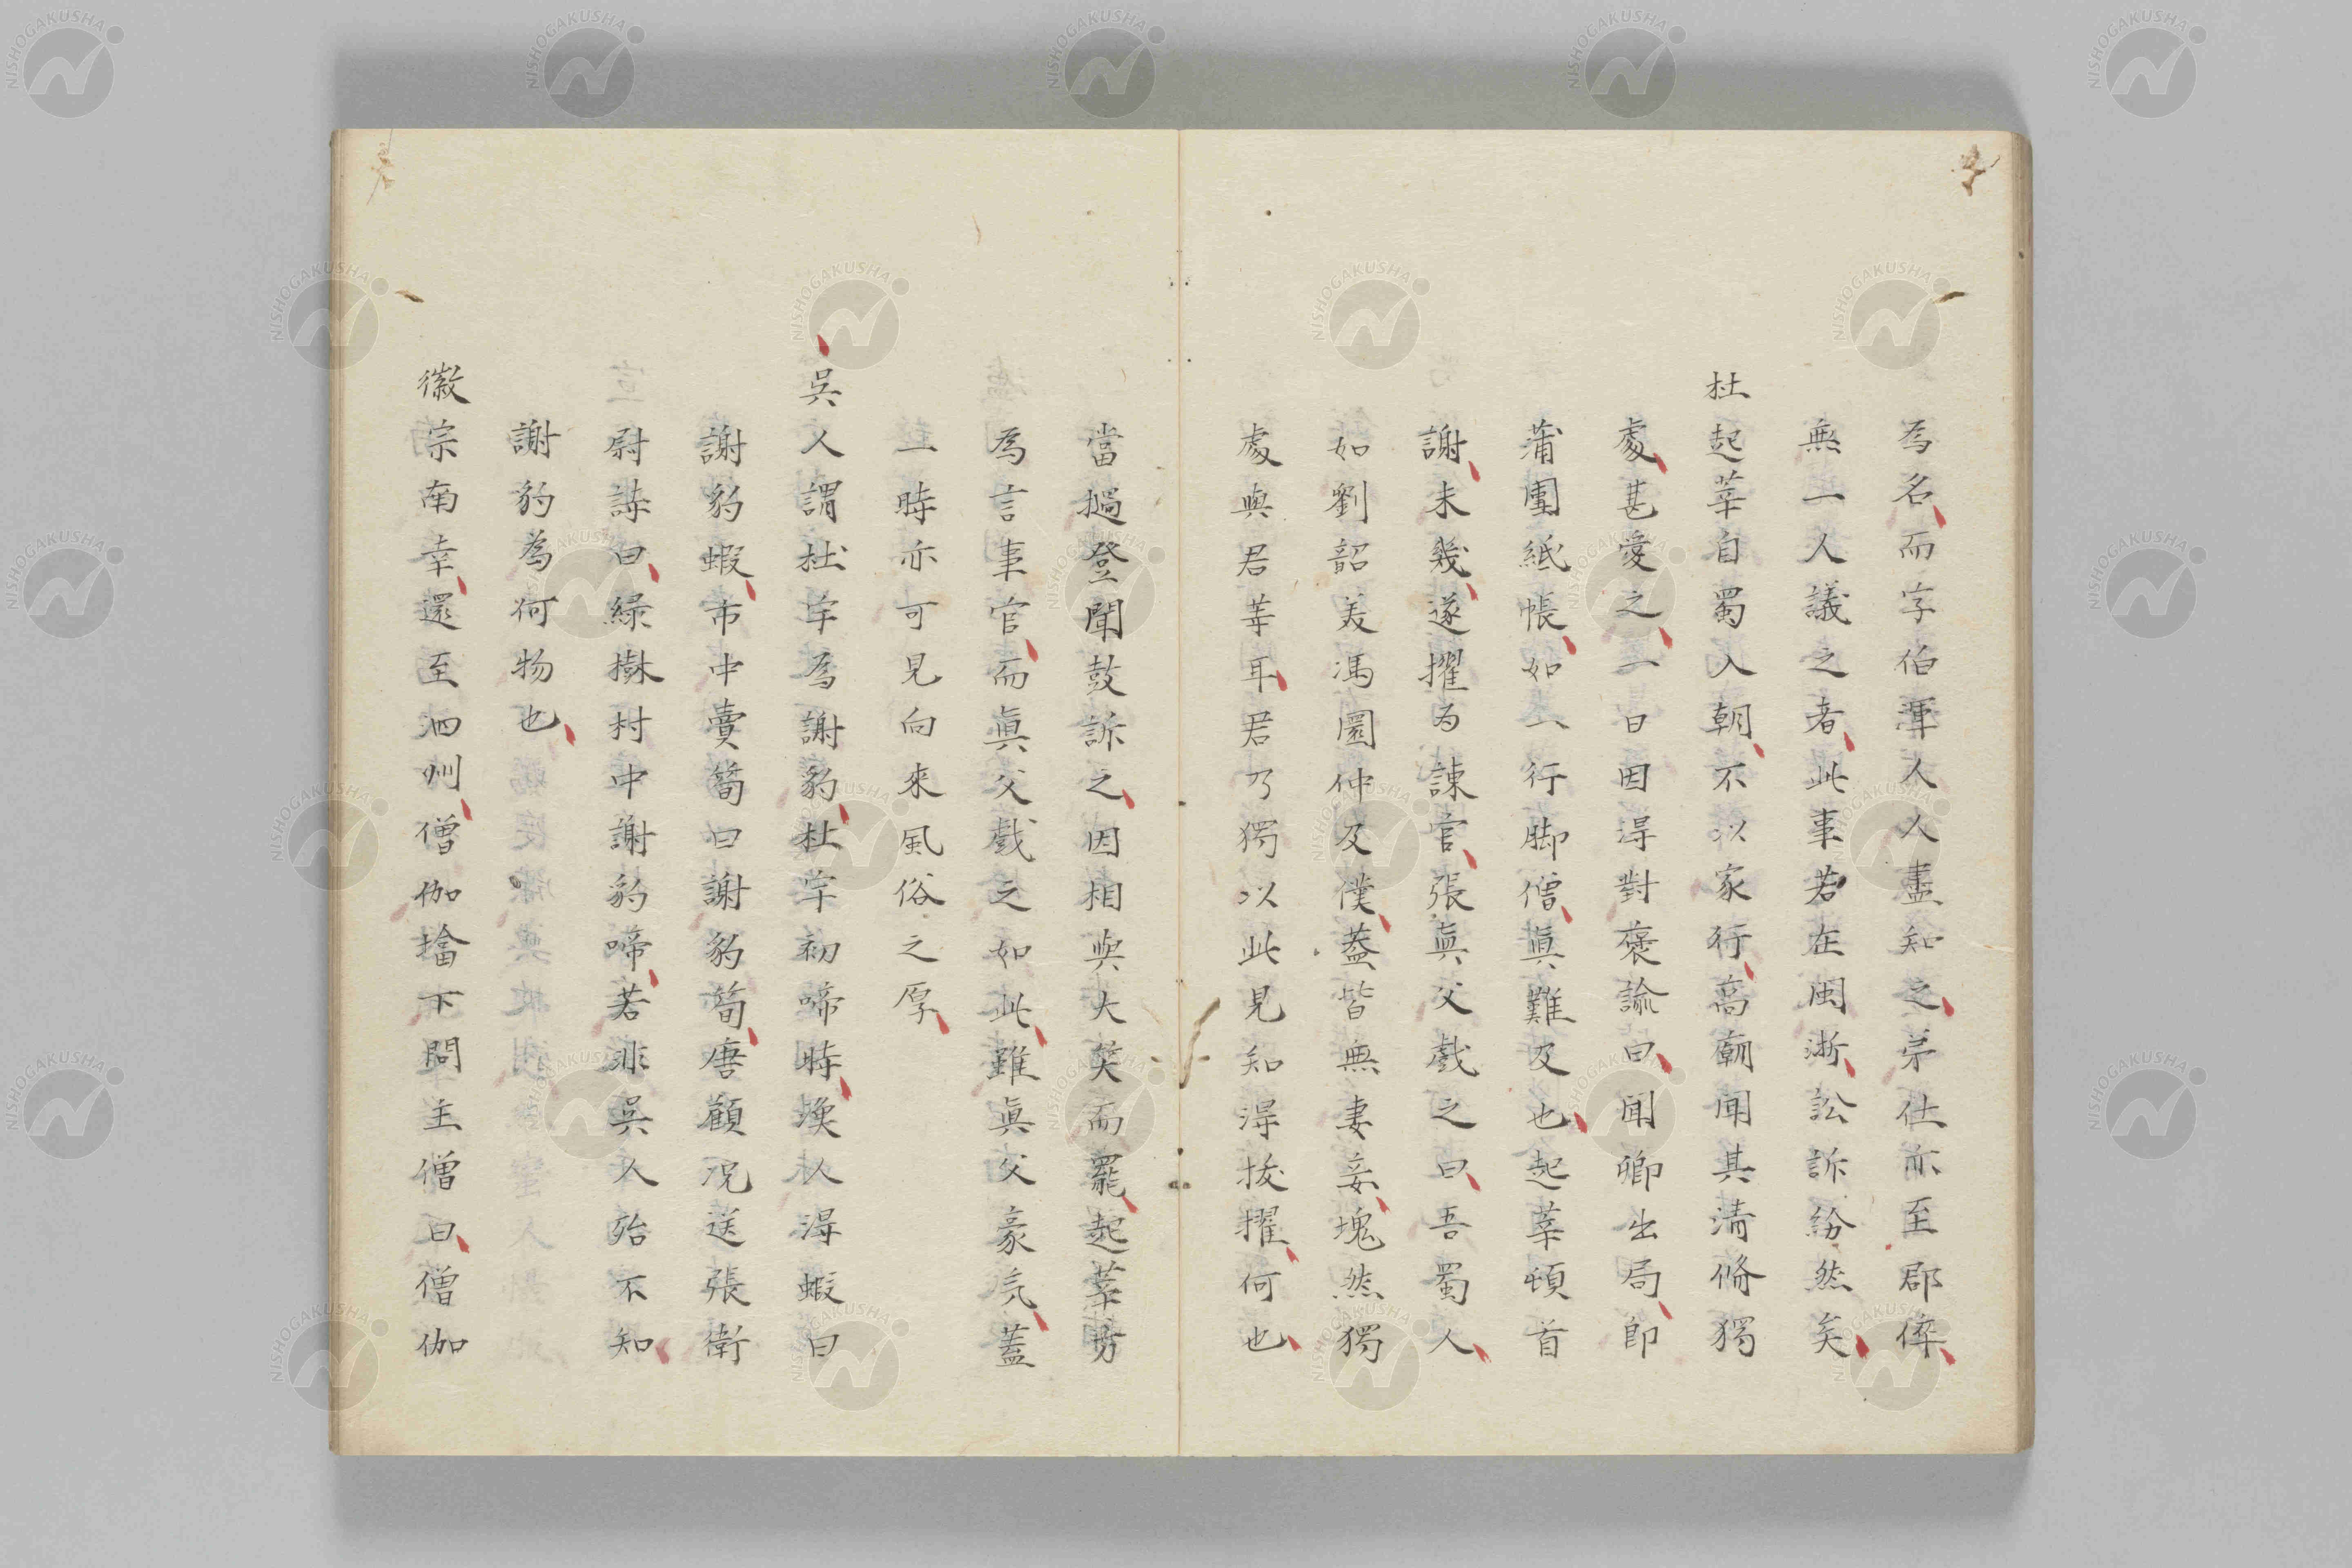 為名而字伯渾人人盡知之弟仕亦至郡倅
無一人議之者此事若在閩浙訟訴紛然矣
杜起莘自蜀入朝不以家行高廟聞其清脩獨
處甚愛之一日因得對褒諭曰聞卿出局即
蒲團紙帳如一行脚僧眞難及也起莘頓首
謝未幾遂擢為諫官張眞父戲之曰吾蜀人
如劉韶美馮圜仲及僕蓋皆無妻妾塊然獨
處與君等耳君乃獨以此見知得拔擢何也
當撾登聞鼓訴之因相與大笑而罷起莘方
為言事官而眞父戲之如此雖眞父豪氣蓋
一時亦可見向來風俗之厚
吳人謂杜宇為謝豹杜宇初啼時漁人得蝦曰
謝豹蝦市中賣筍曰謝豹筍唐顧況送張衛
尉詩曰綠樹村中謝豹啼若非吳人殆不知
謝豹為何物也
徽宗南幸還至泗州僧伽塔下問主僧曰僧伽
NISHOGAKUSHA